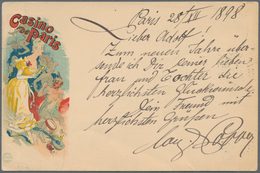 Casino
de Paris
Paris 28/XII 1898
Lieber Adolf!
Zum neuen Jahre über-
sende ich Dir, Deiner lieben
Frau und Tochter die
herzlichsten Glückwünsche.
Dein Freund mit
herzlichsten Grüßen